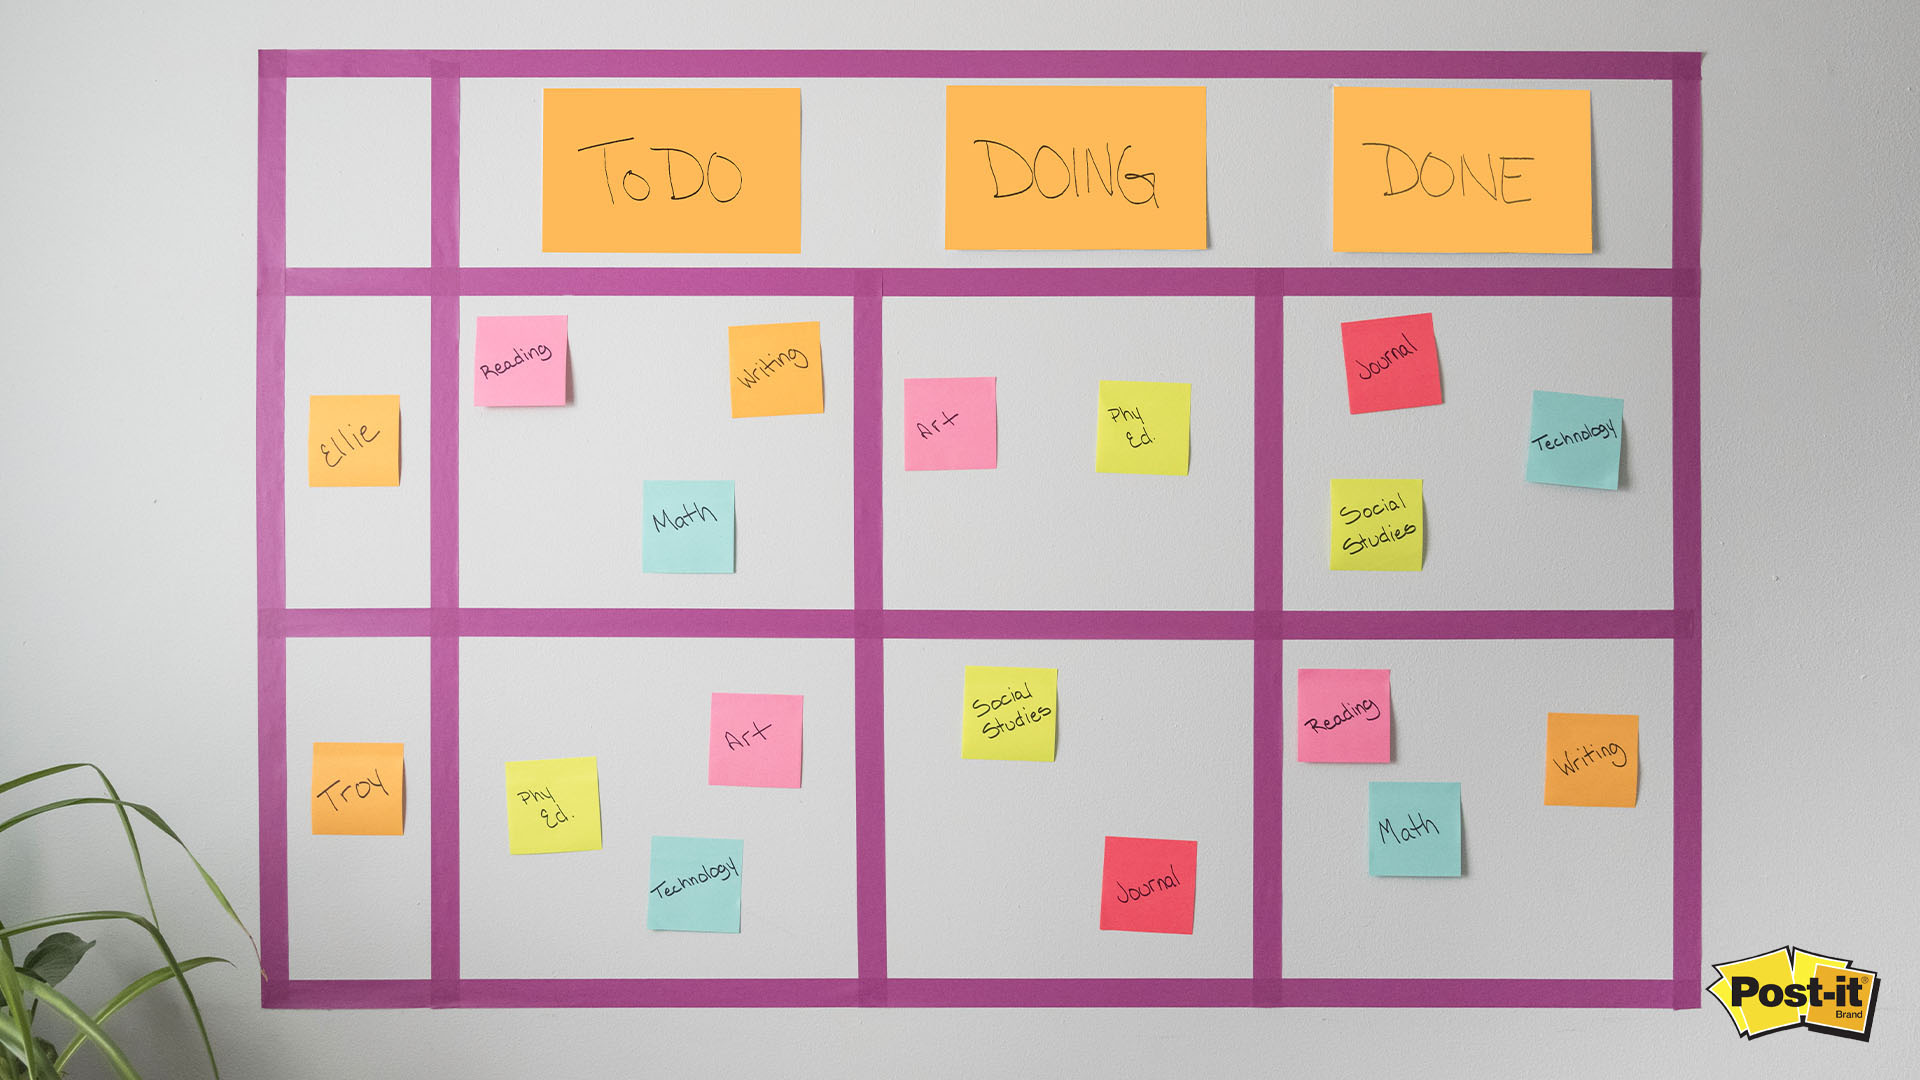 ToDO
DOING
DONE
Ellie
Reading
Writing
Math
Art
Phy
Ed.
Journal
Technology
Social
Studies
Troy
Art
Phy
Ed.
Technology
Social
Studies
Journal
Reading
Writing
Math
Post-it®
Brand